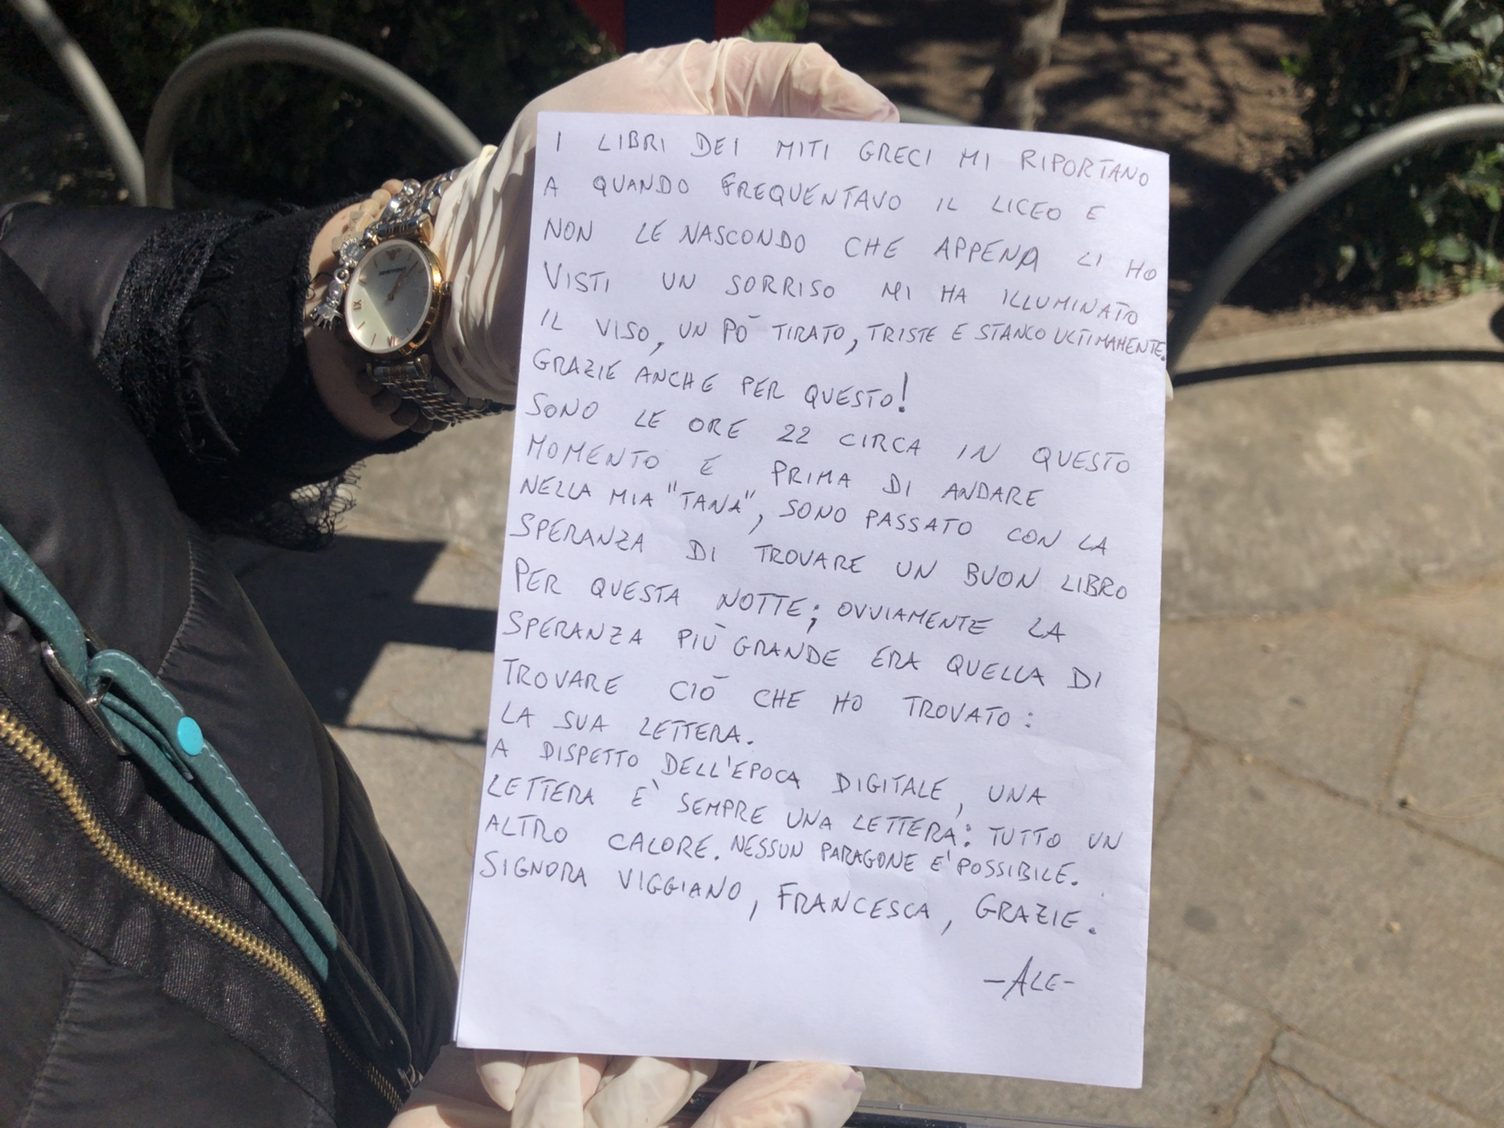 I LIBRI DEI MITI GRECI MI RIPORTANO
A QUANDO FREQUENTAVO IL LICEO E
NON LE NASCONDO CHE APPENA LI HO
VISTI UN SORRISO MI HA ILLUMINATO
IL VISO, UN PÒ TIRATO, TRISTE E STANCO ULTIMAMENTE.
GRAZIE ANCHE PER QUESTO!
SONO LE ORE 22 CIRCA IN QUESTO
MOMENTO E PRIMA DI ANDARE
NELLA MIA "TANA", SONO PASSATO CON LA
SPERANZA DI TROVARE UN BUON LIBRO
PER QUESTA NOTTE; OVVIAMENTE LA
SPERANZA PIÙ GRANDE ERA QUELLA DI
TROVARE CIÒ CHE HO TROVATO:
LA SUA LETTERA.
A DISPETTO DELL'EPOCA DIGITALE, UNA
LETTERA E' SEMPRE UNA LETTERA: TUTTO UN
ALTRO CALORE. NESSUN PARAGONE E' POSSIBILE.
SIGNORA VIGGIANO, FRANCESCA, GRAZIE.
-ALE-